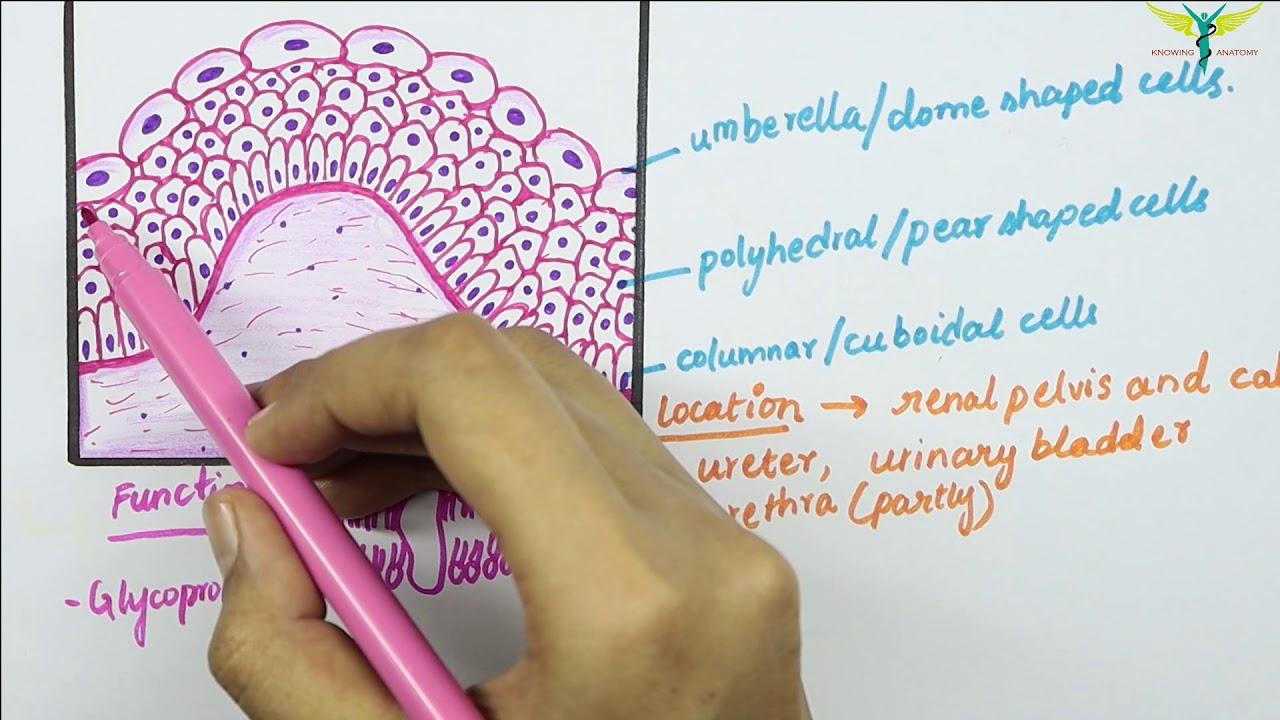 KNOWING ANATOMY
umberella/dome shaped cells.
polyhedral/pear shaped cells
columnar/cuboidal cells
Location → renal pelvis and
ureter, urinary bladder
(partly)